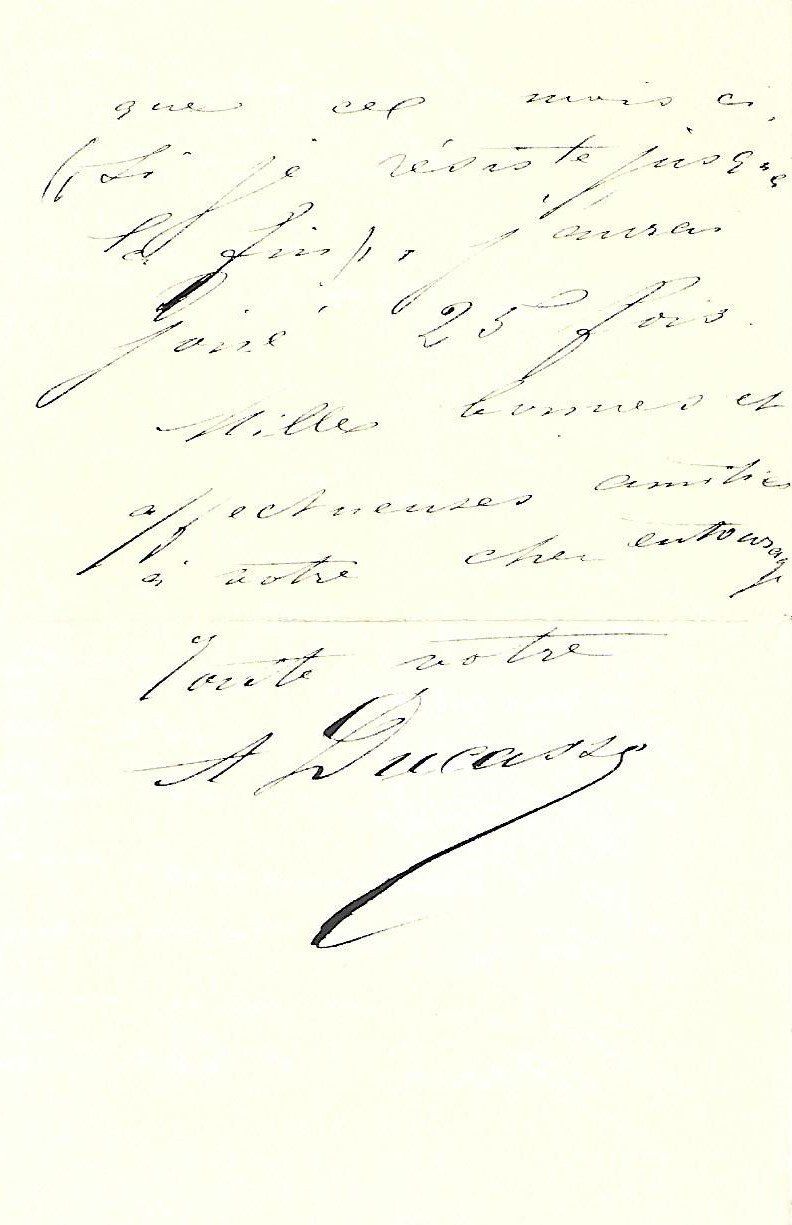 que ce mois ci,
(si je résiste jusqu'à
la fin), j'aurai
joué 25 fois.
Milles bonnes et
affectueuses amitiés
à votre cher entourage
Toute votre
A Ducasse